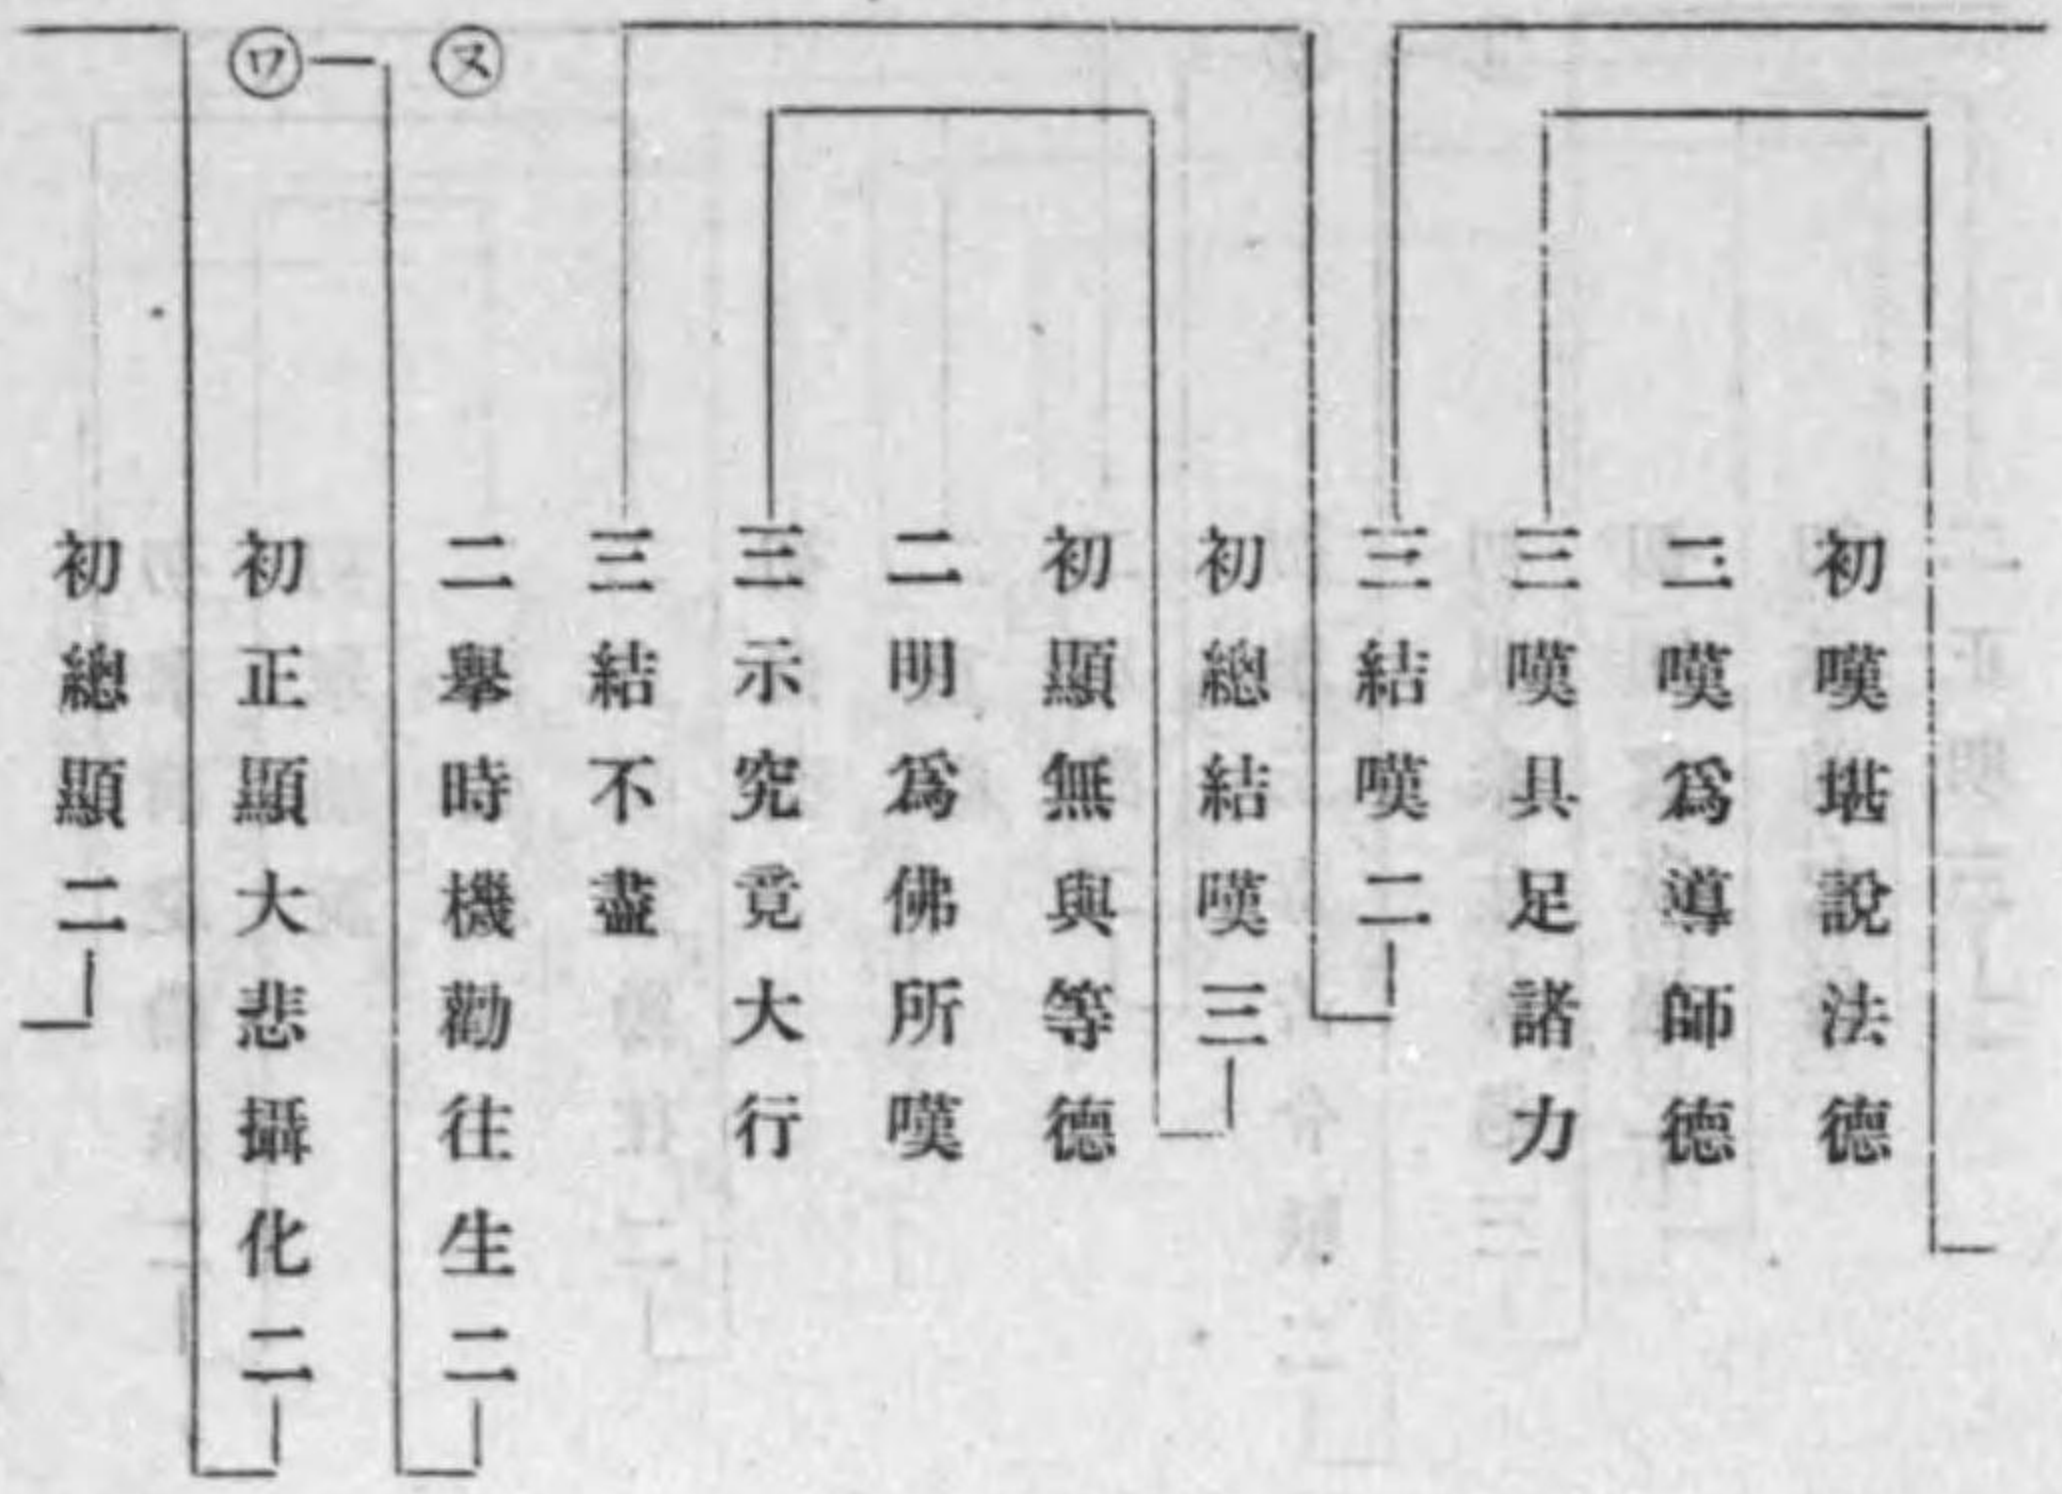 初嘆堪説法德
二嘆爲導師德
三嘆具足諸力
三結嘆二
初總結嘆三
初顯無與等德
二明爲佛所嘆
三示究竟大行
三結不盡
㋦
二擧時機勸往生二
㋻
初正顯大悲攝化二
初總顯二